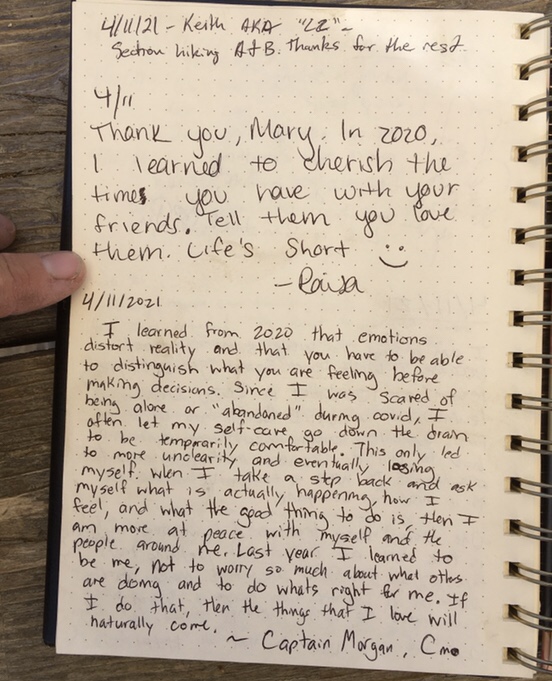 4/11/21 - Keith AKA "LZ" -
Section hiking A&B. Thanks for the rest.
4/11
Thank you, Mary. In 2020,
I learned to cherish the
times you have with your
friends. Tell them you love
them. Life's Short :)
- Raisa
4/11/2021
I learned from 2020 that emotions
distort reality and that you have to be able
to distinguish what you are feeling before
making decisions. Since I was scared of
being alone or "abandoned" during covid, I
often let my self-care go down the drain
to be temporarily comfortable. This only led
to more unclearity and eventually losing
myself. When I take a step back and ask
myself what is actually happening, how I
feel, and what the good thing to do is, then I
am more at peace with myself and the
people around me. Last year I learned to
be me, not to worry so much about what others
are doing and to do whats right for me. If
I do that, then the things that I love will
naturally come.
~ Captain Morgan,